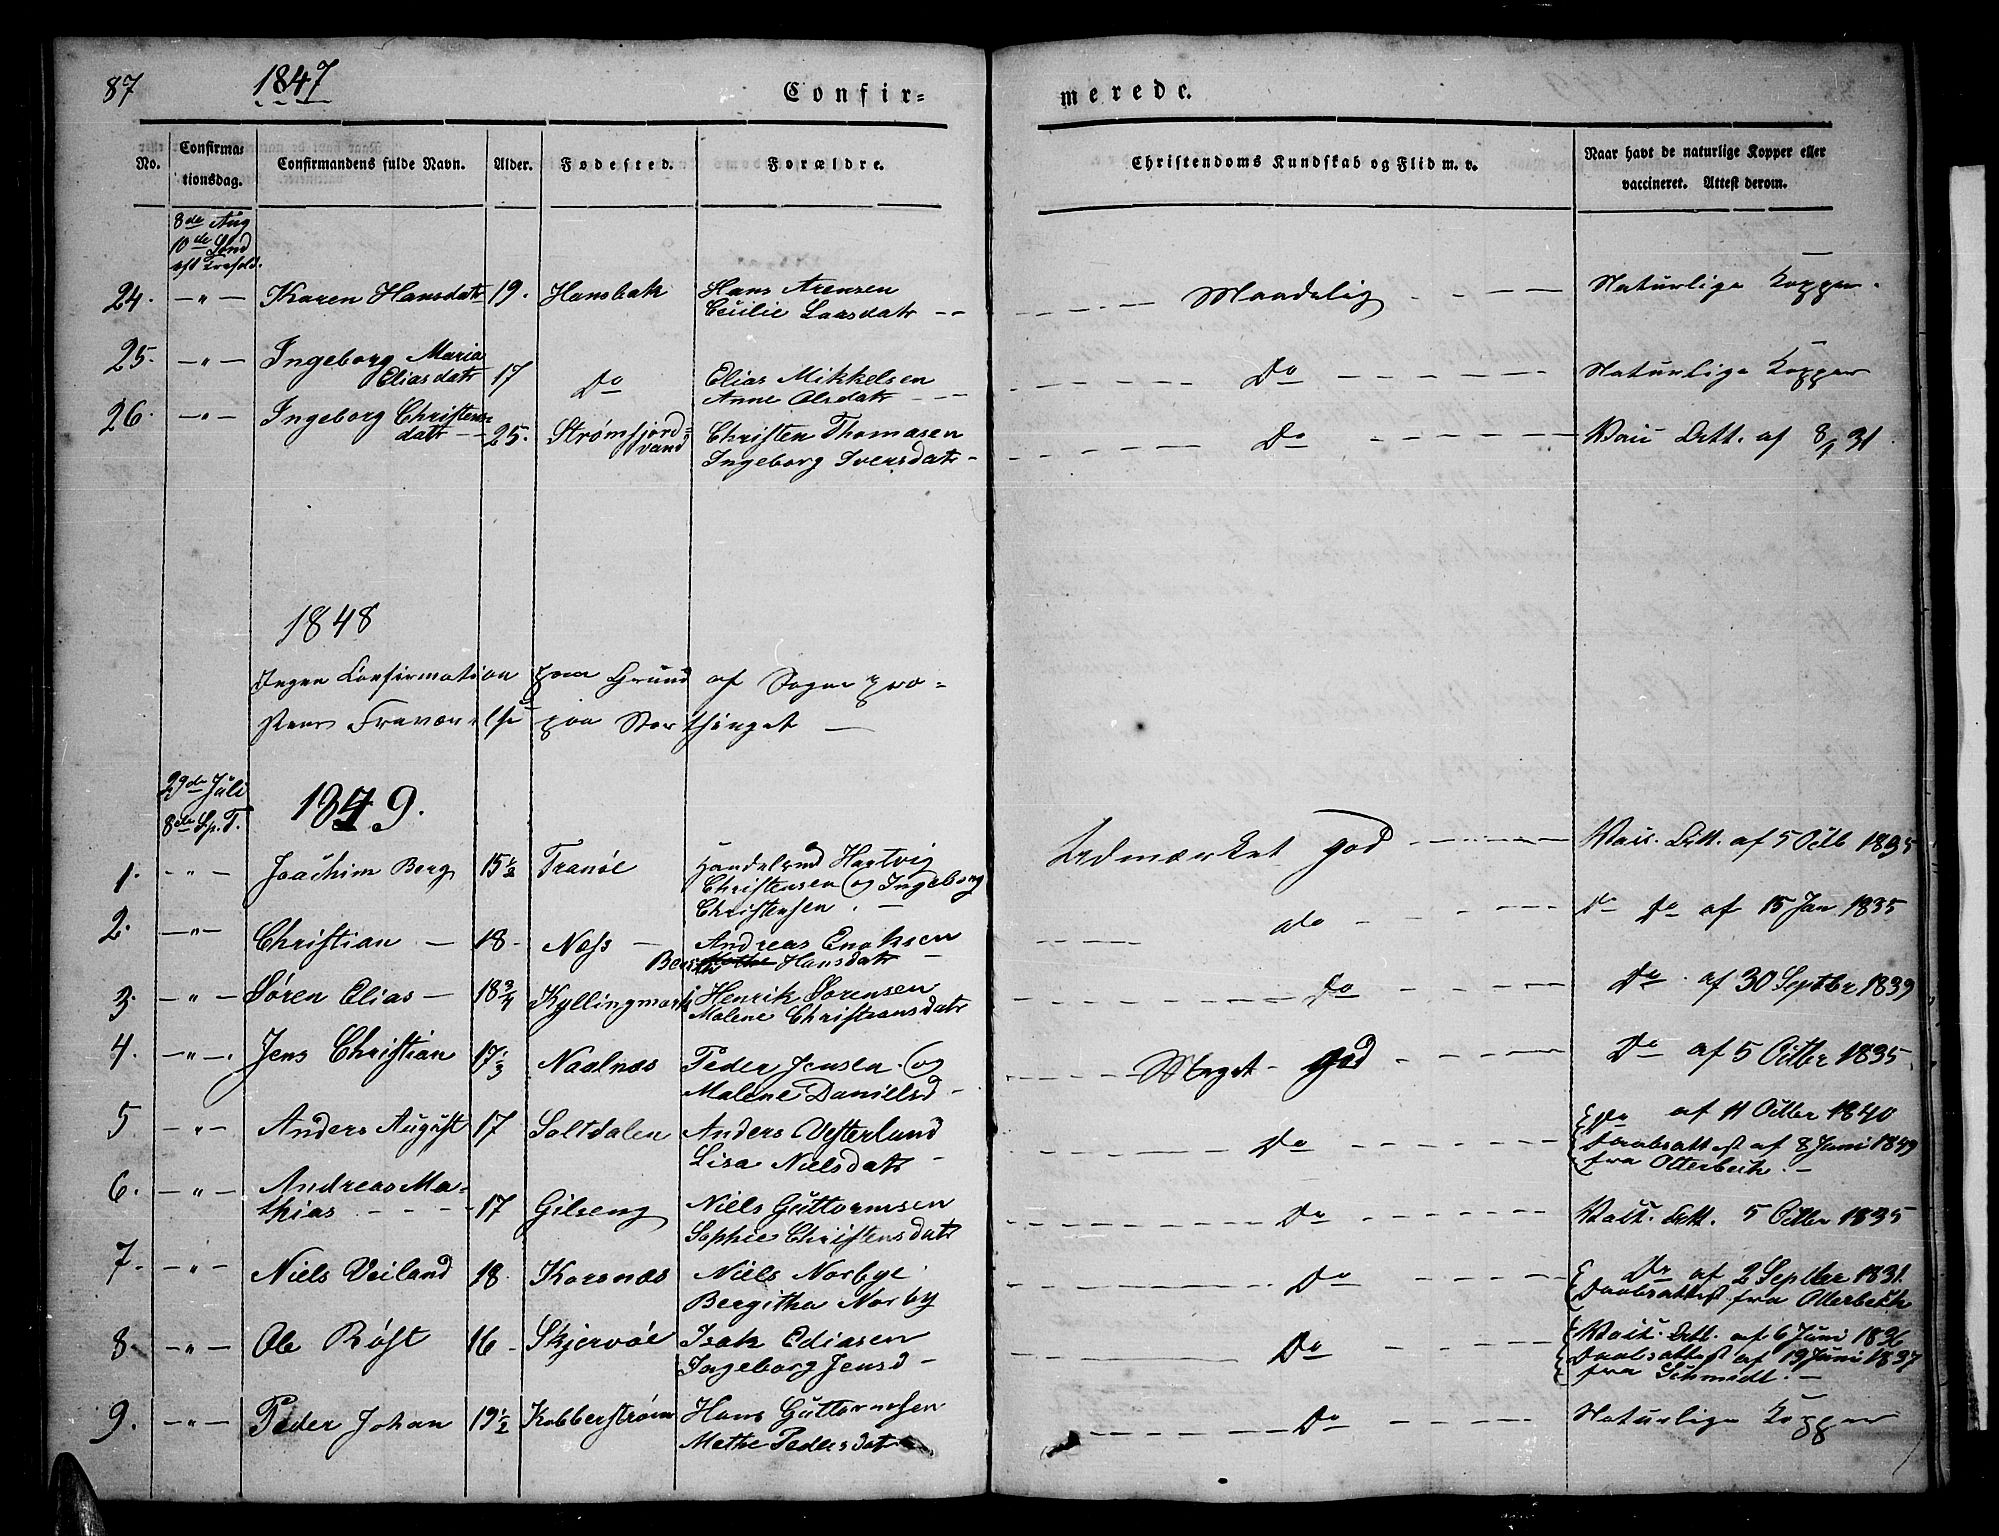 87 1847 Confir= merede.
No. Confirma= tionsdag. Confirmandens fulde Navn. Alder. Fødested. Forældre. Christendoms Kundskab og Flid m. v. Naar havt de naturlige Kopper eller vaccineret. Attest derom.
8de Aug
10de Sønd
24. — " — Karen Hansdatr 19. Hansbak Hans Arensen
Cecilie Larsdatr — Maadelig — Naturlige Kopper.
25. — " — Ingeborg Maria
Eliasdatr 17 Do Elias Mikkelsen
Anne Olsdatr — Do — Naturlige Kopper
26. — " — Ingeborg Christens=
datr — 25. Strømfjord=
vand Christen Thomasen
Ingeborg Iversdatr — Do — Vacc Att. af 8/1 31
1848
Ingen Confirmation paa Grund af Sogne pro=
stens Fraværelse paa Storthinget —
29de Juli
8de S.p.T. 1849.
1. " — Joachim Berg 15½ Tranöe Handelsmd Hartvig
Christensen og Ingeborg
Christensen. — Udmærket god — Vacc. Att. af 5 Octb 1835
2. — " — Christian — 18 — Næss — Andreas Enoksen
Hansdatr — do — Do Do af 15 Jan 1835
3. — " — Søren Elias — 18¾ Kyllingmark Henrik Sørensen
Malene Christiansdatr — Do — Do af 30 Septbr 1839
4. — " — Jens Christian 17⅓ Naalnæs Peder Jensen og
Malene Danielsd — Meget god — Do af 5 Octbr 1835
5 — " — Anders August 17 Saltdalen Anders Vesterlund
Lisa Nielsdatr — Do — Do af 11 Octbr 1840
Daabsattest af 8 Juni 1849
fra Otterbech —
6. — " — Andreas Ma=
thias — 17 Gilseng Niels Guttormsen
Sophie Christensdatr — Do — Vacc. Att. 5 Octbr 1835
7. — " — Niels Veiland 18 Korsnæs Niels Norbye
Bergitha Norby — Do — Do af 2 Septbr 1831.
Daabsattest fra Otterbech
8. — " — Ole Røst 16 — Skjervöe Isak Ediasen
Ingeborg Jensd — Do — Vacc. Att. af 6 Juni 1836
Daabsattest af 19 Juni 1837
fra Schmidt. —
9. — " — Peder Johan 19½ Kobberstrøm Hans Guttormsen
Methe Pedersdatr — Do — Naturlige Kopper